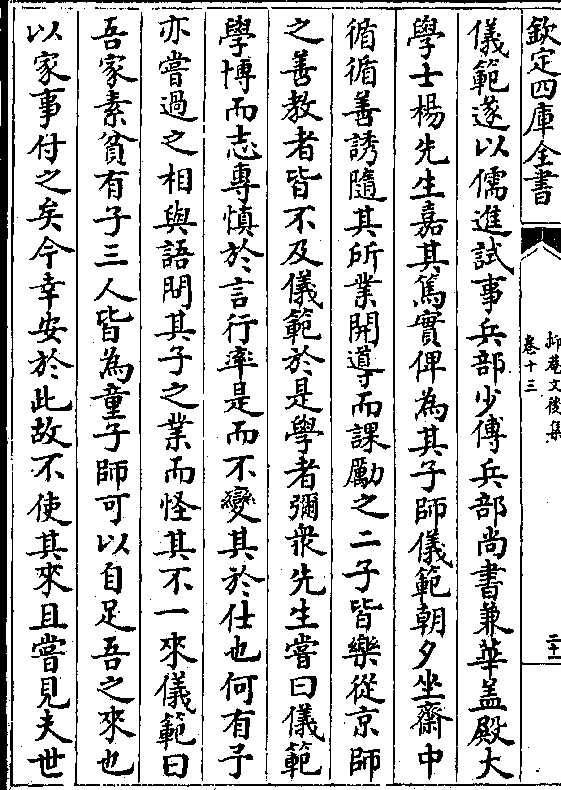 欽定四庫全書
抑菴文後集
卷十三
二十一
儀範遂以儒進試事兵部少傅兵部尚書兼華盖殿大
學士楊先生嘉其篤實俾為其子師儀範朝夕坐齋中
循循善誘隨其所業開導而課勵之二子皆樂從京師
之善教者皆不及儀範於是學者彌衆先生嘗曰儀範
學博而志專慎於言行率是而不變其於仕也何有予
亦嘗過之相與語問其子之業而怪其不一來儀範曰
吾家素貧有子三人皆為童子師可以自足吾之來也
以家事付之矣今幸安於此故不使其來且嘗見夫世